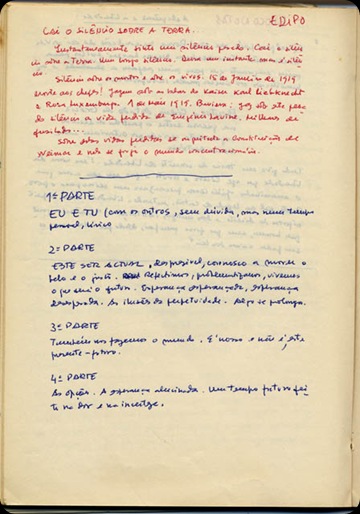 EDIPO
CAI O SILÊNCIO SOBRE A TERRA...
Instantaneamente sinto um silêncio pesado. Cai o silên
cio sobre a terra. Um longo silêncio. Dura um instante
Silêncio sobre os mortos e sobre os vivos. 15 de Janeiro de 1919
morte aos chefes! Jazem Karl Liebknecht
e Rosa Luxemburgo. 1 de maio 1919. este pesa
do silêncio a vida perdida de Eugénio Levine. Milhares de
fuzilados...
vidas perdidas se a Constituição de
Weimar e o mundo concentracionário.
1ª PARTE
EU E TU (com os outros, sem dúvida, mas num tempo
pessoal, único
2ª PARTE
ESTE SER ACTUAL, disponível, connosco a morte o
belo e o justo. Repetimos, problematizamos, vivemos
o que será o futuro. Esperança esperançada, esperança
desesperada. As ilusões da perpetuidade. Algo se prolonga.
3ª PARTE
Também nós fazemos o mundo. É nosso e não é, este
presente-futuro.
4ª PARTE
As opções. A esperança alucinada. Um tempo futuro fei
to na dor e na incerteza.